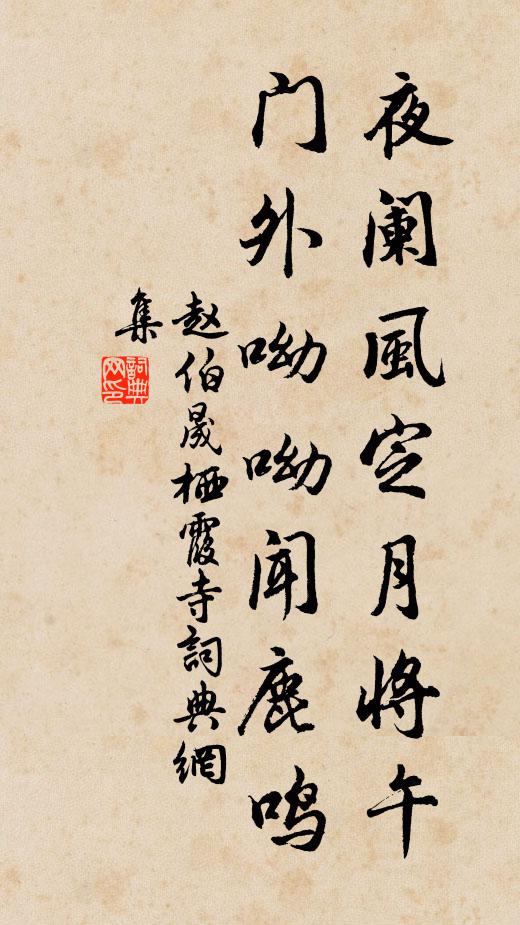 夜阑風定月将午
门外呦呦闻鹿鸣
赵伯晟栖霞寺詞典網
集
詞典网印